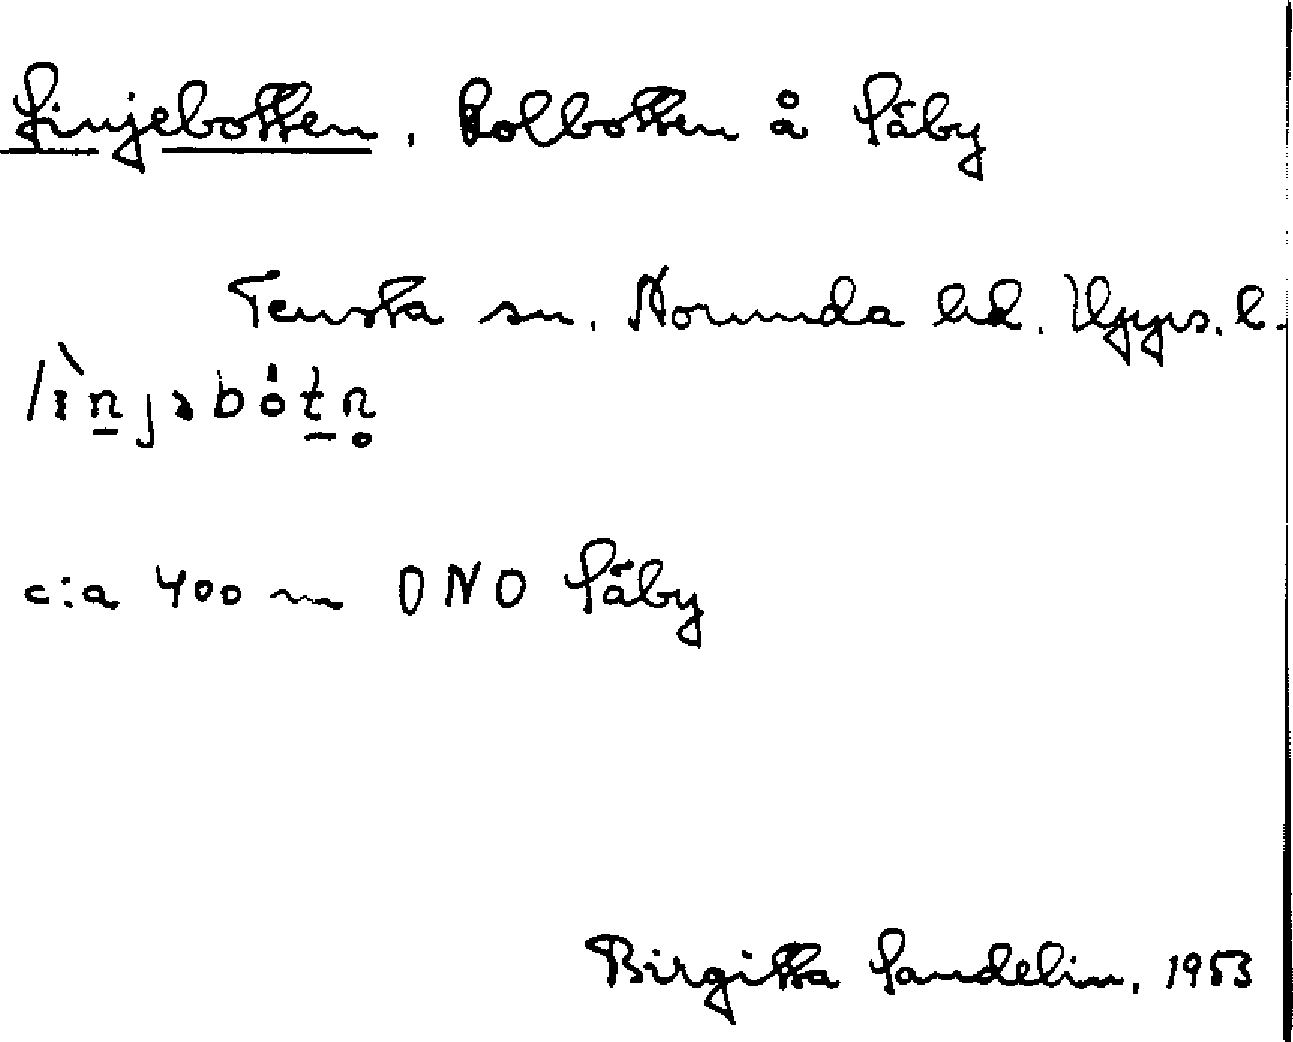 Linjebotten, kolbotten å Säby
Tensta sn. Norunda hd. Upps. l.
lìn̠jəbòt̠n̥
c:a 400 m ONO Säby
Birgitta Sandelin, 1953